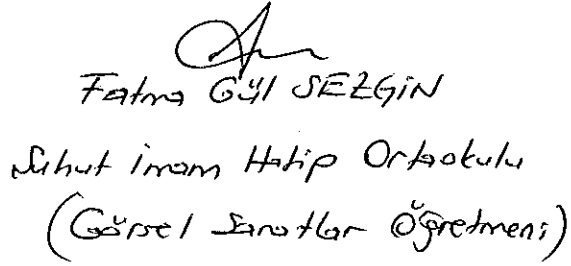 Fatma Gül SEZGİN
Şuhut İmam Hatip Ortaokulu
(Görsel Sanatlar Öğretmeni)